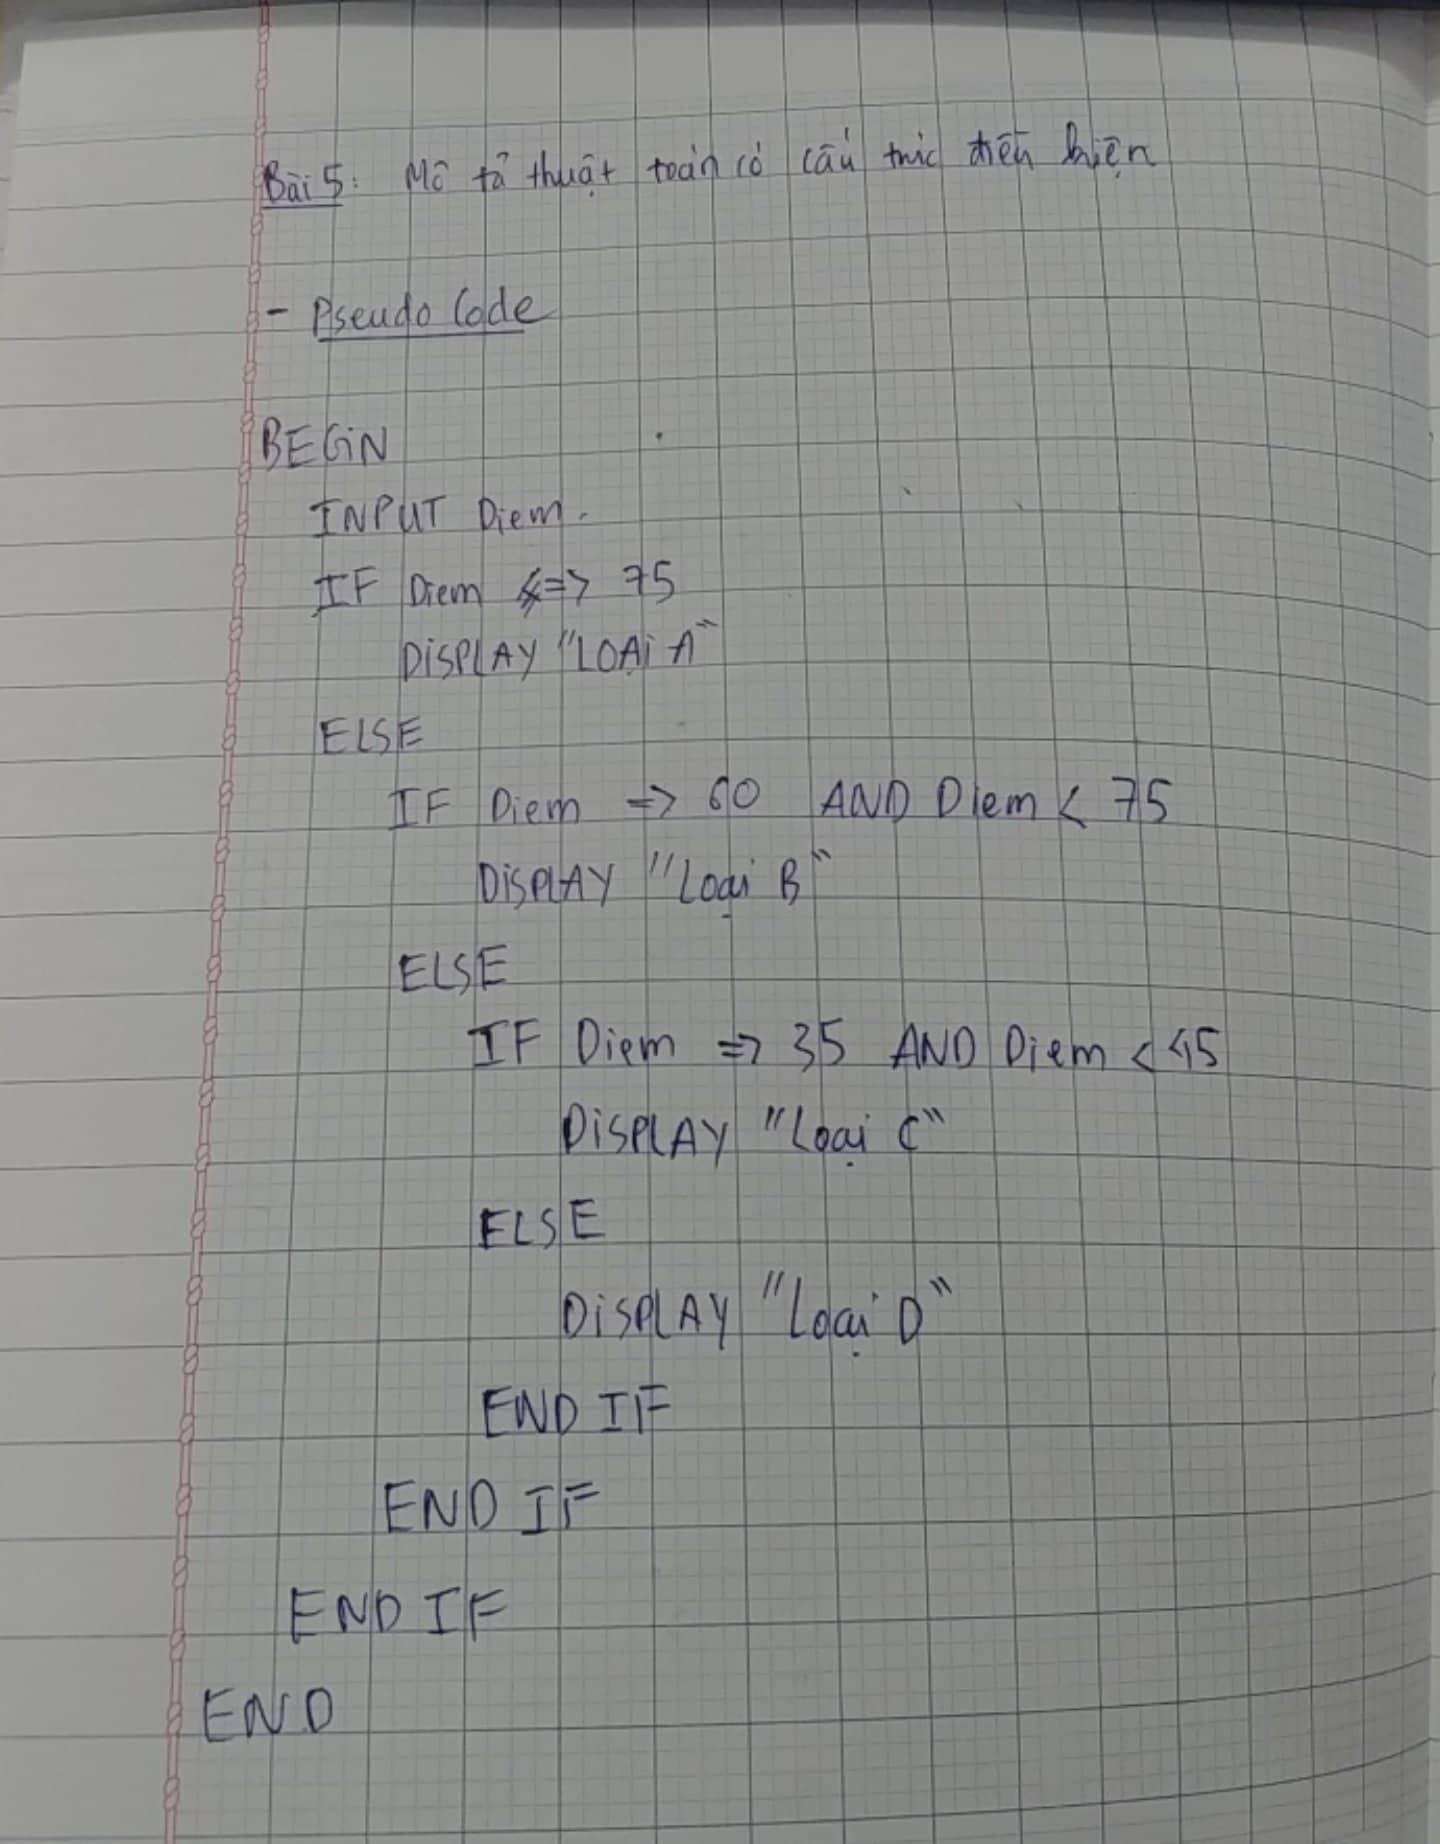 Bài 5: Mô tả thuật toán có cấu trúc điều kiện
- Pseudo Code
BEGiN
INPUT Diem.
IF Diem => 75
DiSPLAY "LOẠi A"
ELSE
IF Diem => 60 AND Diem < 75
DiSPLAY "Loại B"
ELSE
IF Diem => 35 AND Diem < 45
DiSPLAY "Loại C"
ELSE
DiSPLAY "Loại D"
END IF
END IF
END IF
END